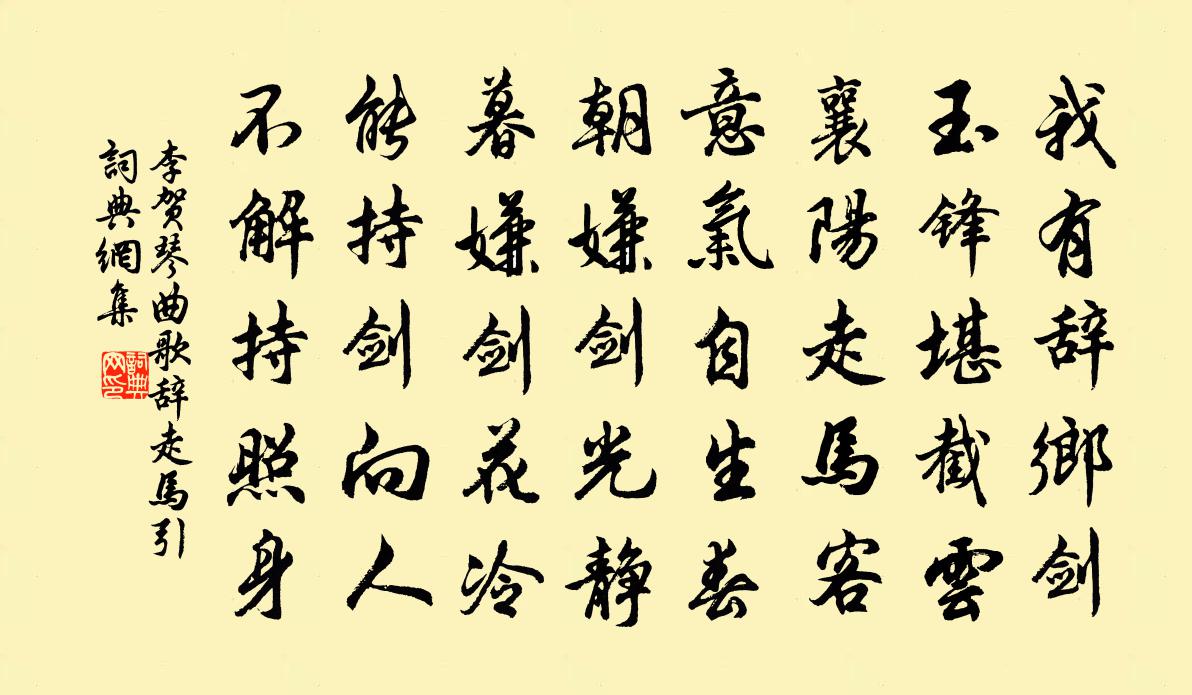 我有辞鄉剑
玉锋堪截雲
襄陽走馬客
意氣自生春
朝嫌剑光静
暮嫌剑花冷
能持剑向人
不解持照身
李贺琴曲歌辞走馬引
詞典網集
詞典网印